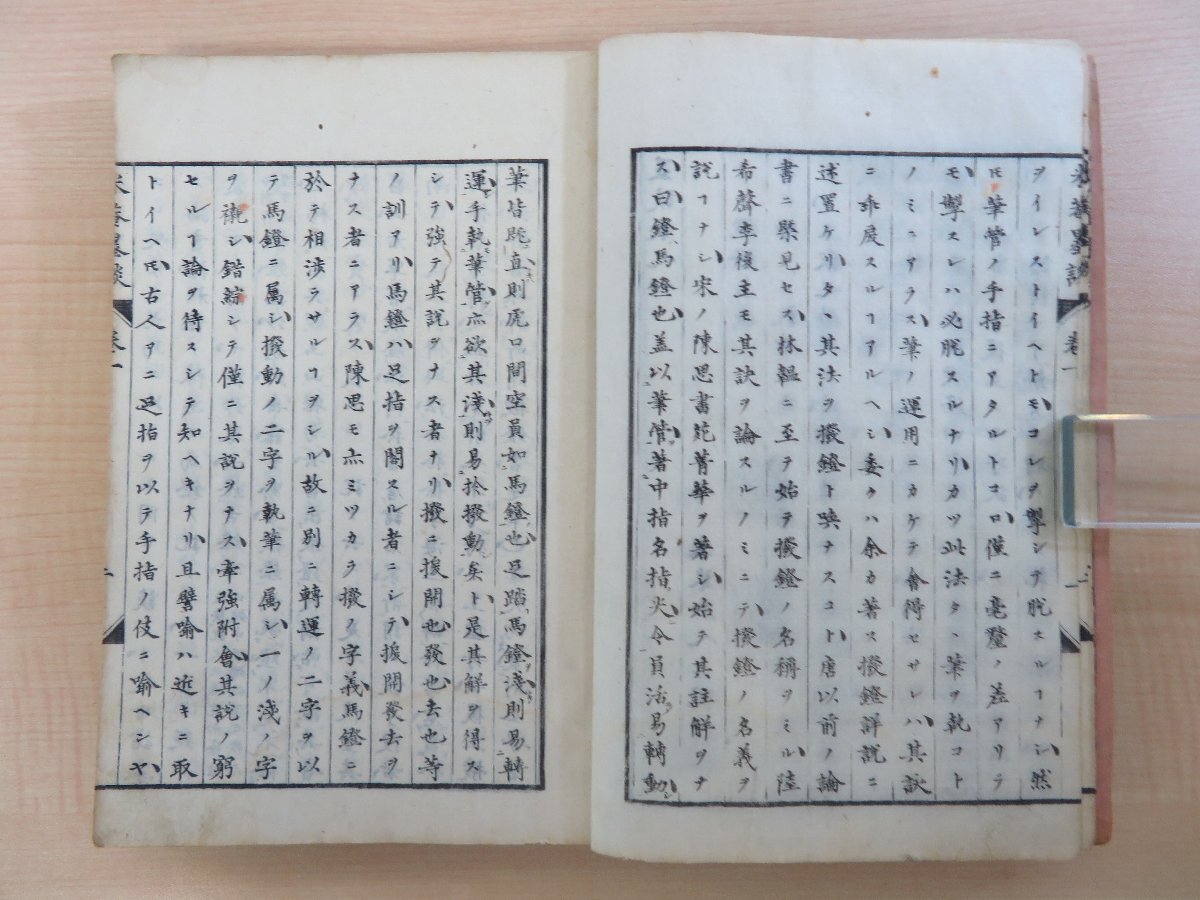 ヲイレストイヘトモコレヲ掣シテ脱スルヿナシ然
𪜈筆管ノ手指ニアタルトコロ僅ニ毫釐ノ差アリテ
モ掣スレハ必脱スルナリカツ此法タヽ筆ヲ執コト
ノミニアラス筆ノ運用ニカケテ會得セサレハ其訣
ニ乖戻スルヿアルヘシ委クハ余カ著ス撥鐙詳説ニ
述置ケリタヽ其法ヲ撥鐙ト喚ナスコト唐以前ノ論
書ニ槩見セス林韞ニ至テ始テ撥鐙ノ名稱ヲミル陸
希聲李後主モ其訣ヲ論スルノミニテ撥鐙ノ名義ヲ
説ヿナシ宋ノ陳思書苑菁華ヲ著シ始テ其註解ヲナ
ス曰鐙馬鐙也盖以筆管著中指名指尖令員活易轉動
筆皆既直則虎口間空員如馬鐙也足踏馬鐙淺則易轉
運手執筆管亦欲其淺則易於撥動矣ト是其解ヲ得ス
シテ強テ其説ヲナス者ナリ撥ニ援開也發也去也等
ノ訓アリ馬鐙ハ足指ヲ閣スル者ニシテ援開發去ヲ
ナス者ニアラス陳思モ亦ミツカラ撥ノ字義馬鐙ニ
於テ相渉ラサルコヲシル故ニ別ニ轉運ノ二字ヲ以
テ馬鐙ニ属シ撥動ノ二字ヲ執筆ニ属シ一ノ淺ノ字
ヲ襯シ錯綜シテ僅ニ其説ヲナス牽強附會其説ノ窮
セルヿ論ヲ待スシテ知ヘキナリ且譬喩ハ近キニ取
トイヘ𪜈古人アニ足指ヲ以テ手指ノ伎ニ喩ヘンヤ
卷一
二